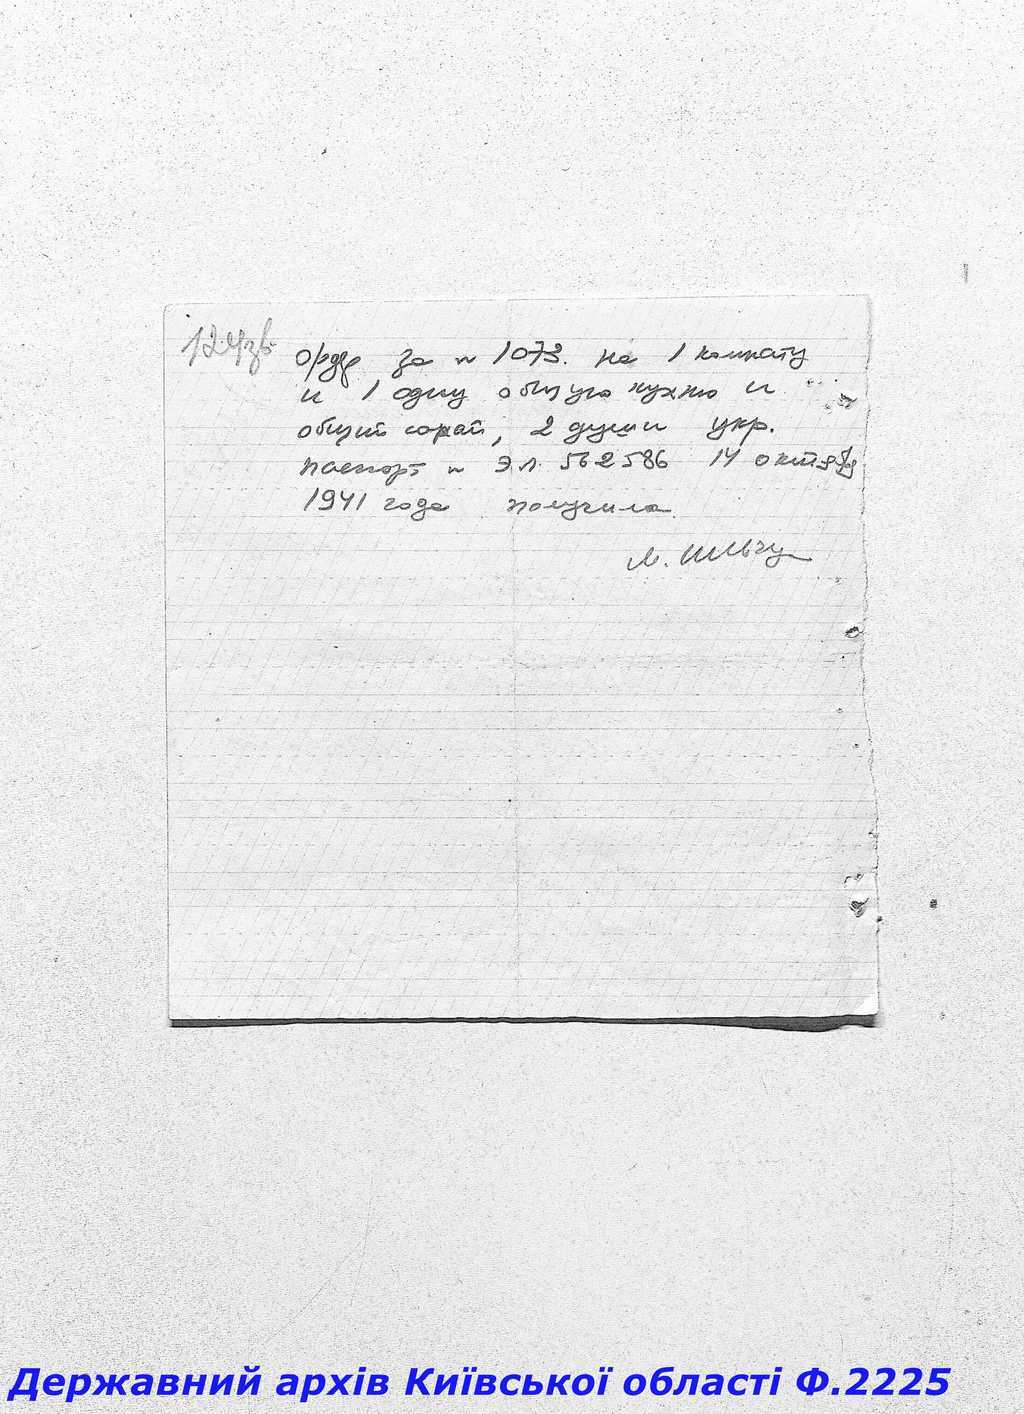 124зв.
Ордер за № 1073. на 1 комнату
и 1 одну общую кухню и
общий сарай, 2 души укр.
паспорт № ЭЛ 562586 14 октября
1941 года получила
Державний архів Київської області Ф.2225